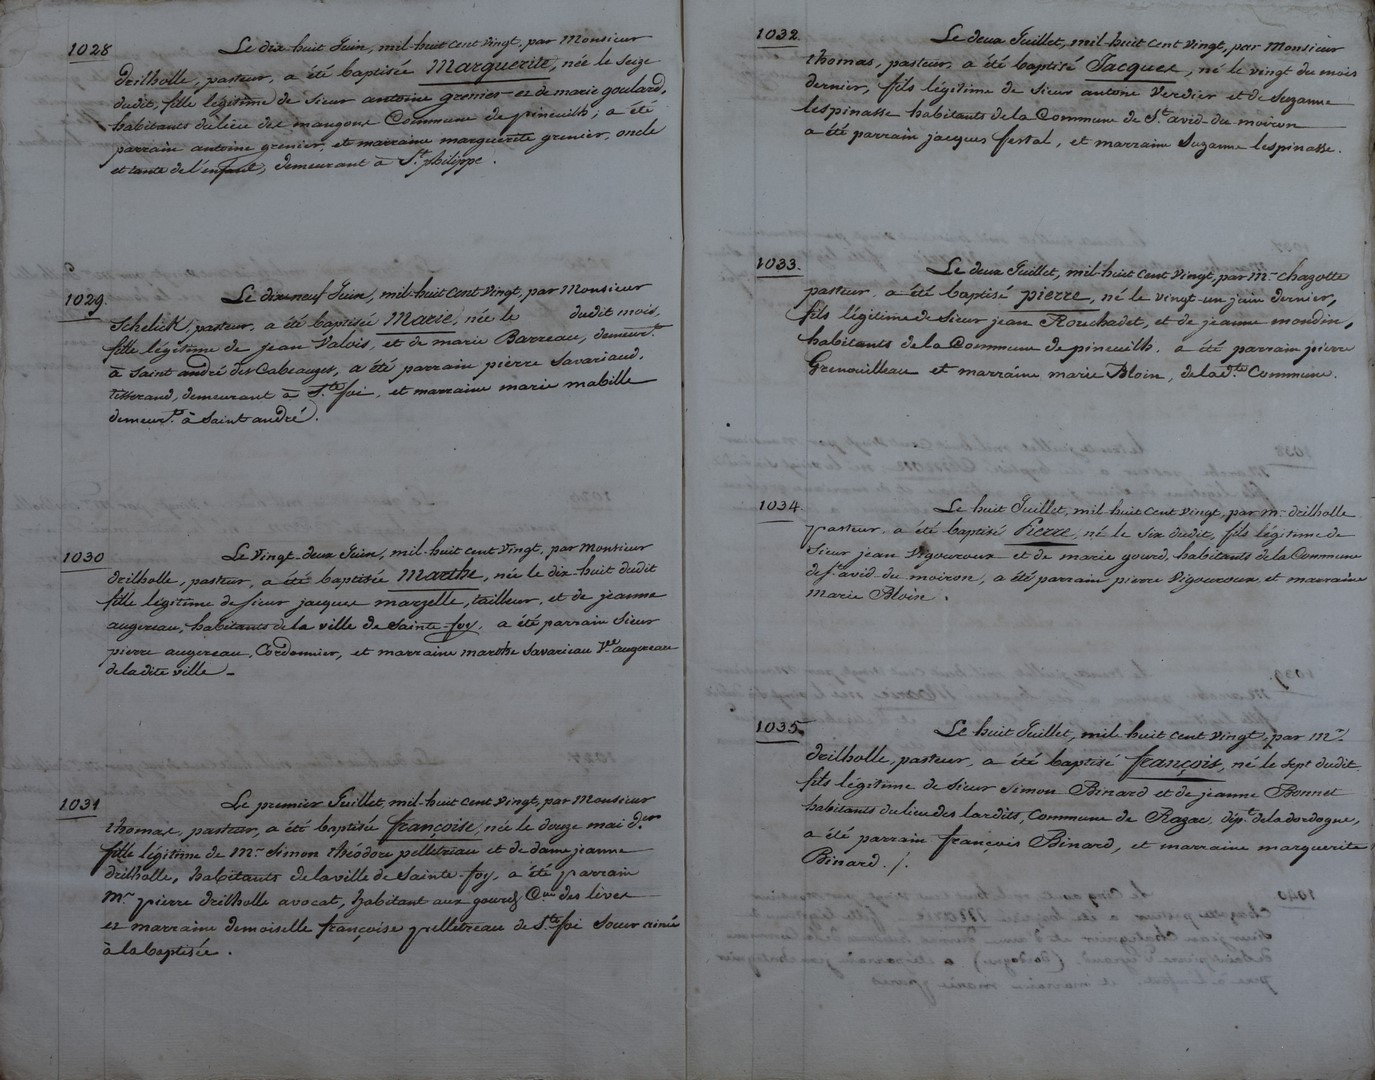 1028
Le dix-huit Juin, mil-huit cent vingt, par Monsieur
Drilholle, pasteur, a été baptisée Marguerite, née le seize
dudit, fille légitime de sieur antoine grenier et de marie goulard,
habitants du lieu des maugous Commune de pineuilh; a été
parrain antoine grenier, et marraine marguerite grenier, oncle
et tante de l'enfant, demeurant à St. philippe.
1029
Le dix-neuf Juin, mil-huit cent vingt, par Monsieur
Schelick, pasteur, a été baptisée Marie, née le dudit mois,
fille légitime de jean Valois, et de marie Barreau, demeurt.
à Saint andré des Cabeauges, a été parrain pierre Savariaud,
tisserand, demeurant à Ste. foi, et marraine marie mabille
demeurt. à Saint andré.
1030
Le Vingt-deux Juin, mil-huit cent vingt, par Monsieur
drilholle, pasteur, a été baptisée Marthe, née le dix huit dudit
fille légitime de sieur jacques marzelle, tailleur, et de jeanne
augereau, habitants de la ville de Sainte-foy, a été parrain Sieur
pierre augereau, Cordonnier, et marraine marthe Savarieau Vve. augereau
de la dite ville _
1031
Le premier Juillet, mil-huit cent vingt, par Monsieur
thomas, pasteur, a été baptisée françoise, née le douze mai der
fille légitime de Mr. Simon théodore pelletreau et de dame jeanne
drilholle, habitants de la ville de Sainte-foy, a été parrain
Mr. pierre drilholle avocat, habitant aux gourds Cne des lèves
et marraine demoiselle françoise pelletreau de Ste. foi Soeur ainée
à la baptisée.
1032
Le deux Juillet, mil-huit cent vingt, par Monsieur
thomas, pasteur, a été baptisé Jacques, né le vingt du mois
dernier, fils légitime de Sieur antone Verdier et de Suzanne
lespinasse habitants de la Commune de St. avid du moiron
a été parrain jacques festal, et marraine Suzanne lespinasse.
1033.
Le deux Juillet, mil-huit cent vingt, par Mr. chazotte
pasteur, a été baptisé pierre, né le vingt-un juin dernier,
fils légitime de Sieur jean Rouchadet, et de jeanne moudin,
habitants de la Commune de pineuilh, a été parrain pierre
Grenouilleau et marraine marie Bloin, de la dte. Commune.
1034
Le huit Juillet, mil-huit cent vingt, par mr. drilholle
pasteur, a été baptisé Pierre, né le Six dudit, fils légitime de
Sieur jean Vigouroux et de marie gourd, habitants de la Commune
de St. avid du moiron, a été parrain pierre Vigouroux et marraine
marie Bloin.
1035.
Le huit Juillet, mil-huit cent vingt, par Mr.
Drilholle, pasteur, a été baptisé françois, né le sept dudit
fils légitime de Sieur Simon Binard et de jeanne Bonnet
habitants du lieu des lardits, Commune de Razac, dép. de la dordogne,
a été parrain françois Binard, et marraine marguerite
Binard. /.